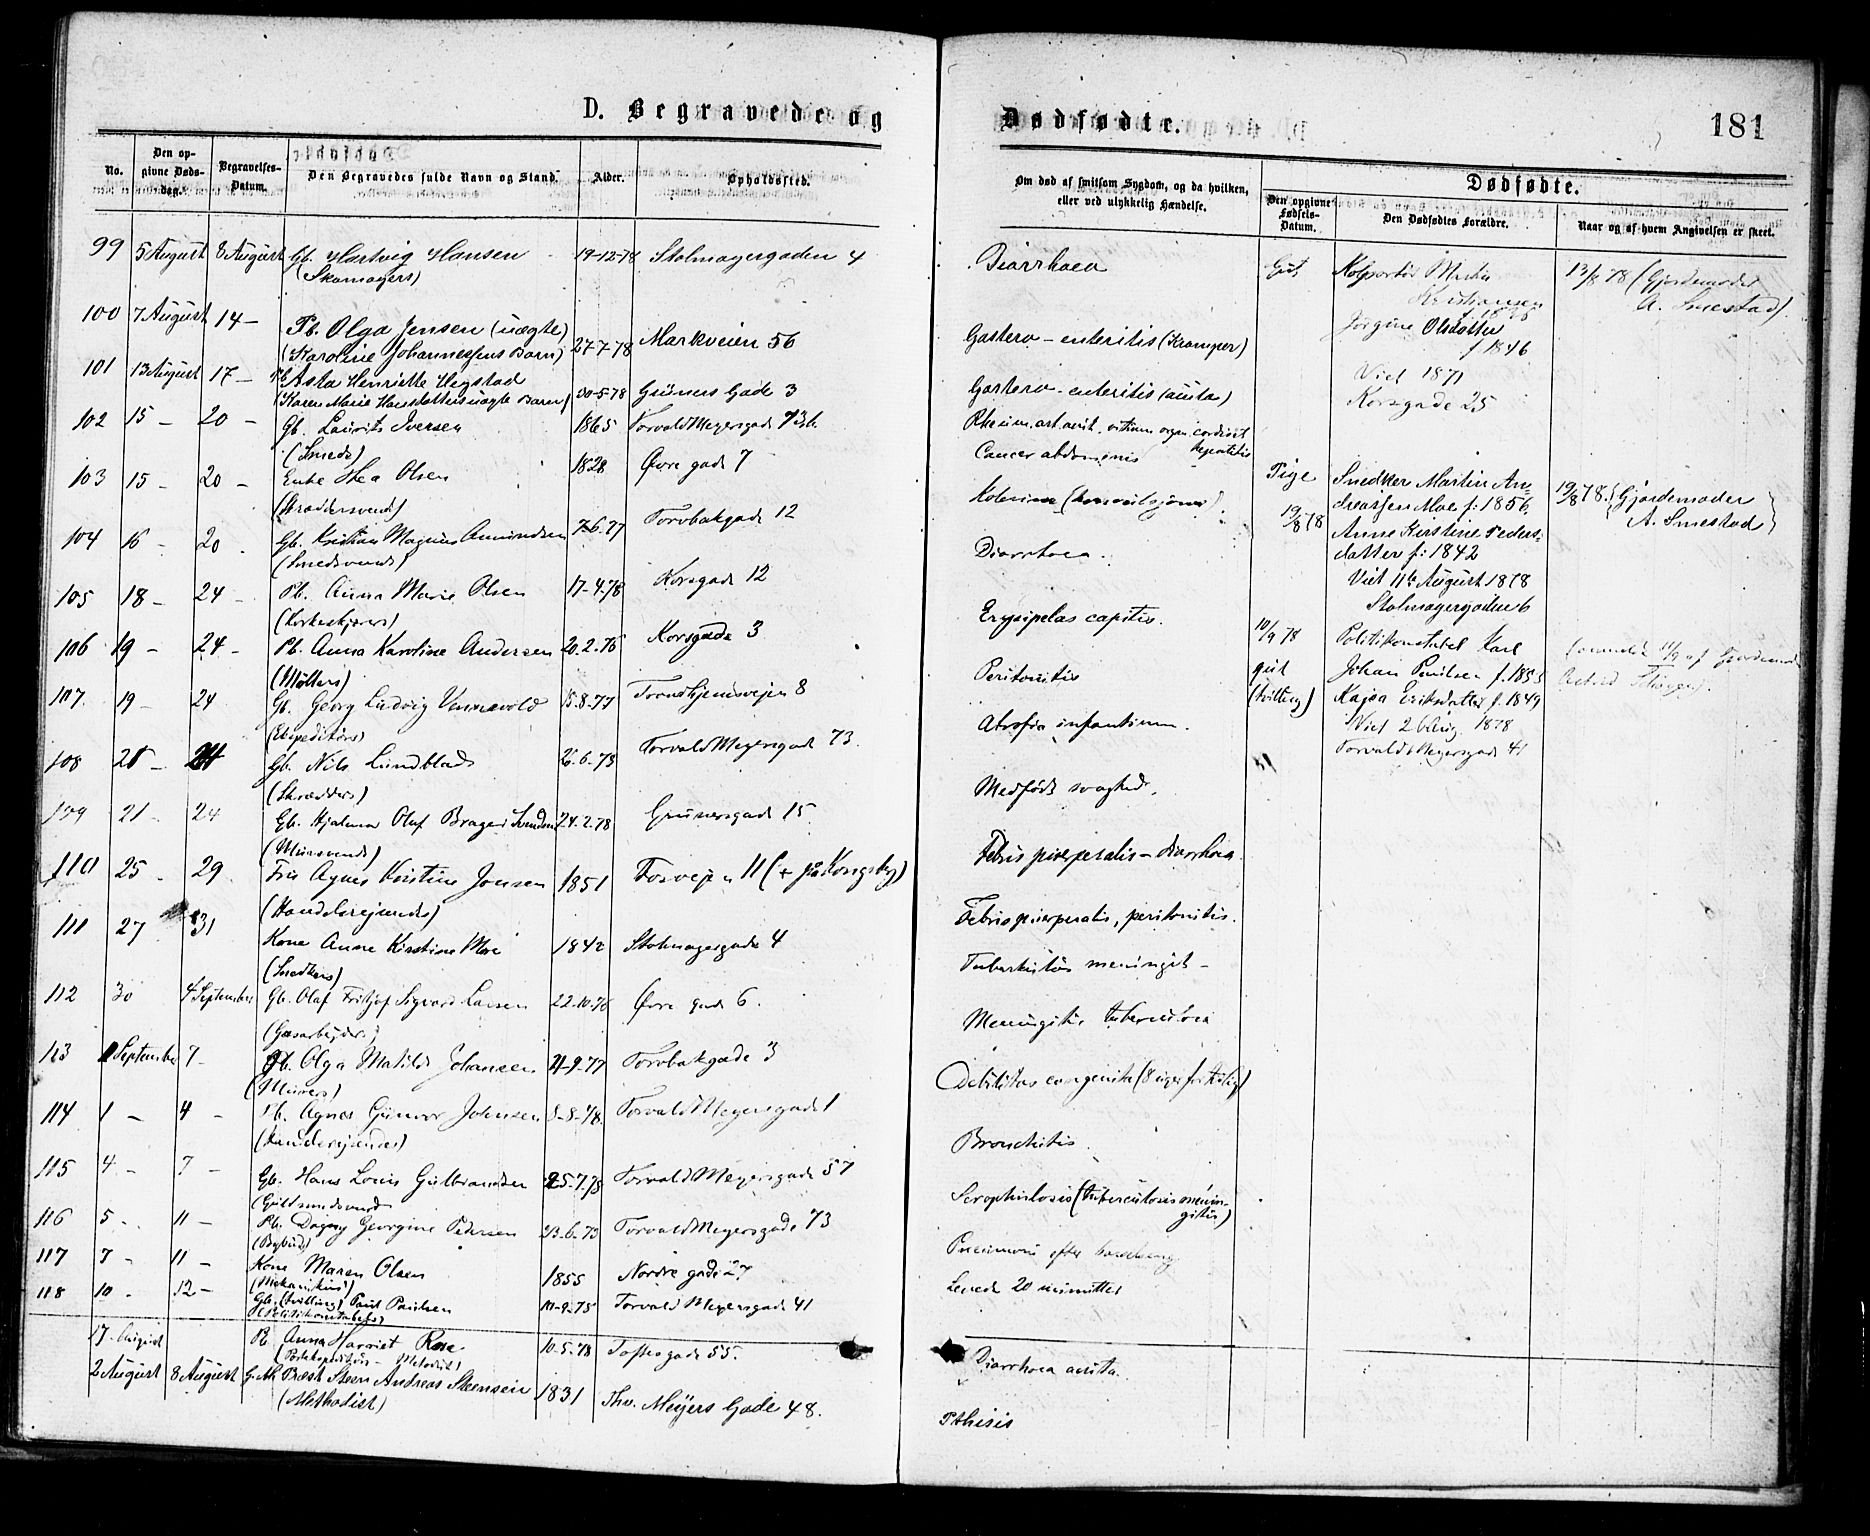 D. Begravede og Dødfødte. 181
No. Den opgivne Døds-dag. Begravelses-Datum. Den Begravedes fulde Navn og Stand. Alder. Opholdssted.
Om død af smitsom Sygdom, og da hvilken, eller ved ulykkelig Hændelse.
Dødfødte.
Den opgivne Fødsels-Datum. Den Dødfødtes Forældre. Naar og af hvem Angivelsen er skeet.
99 5 August 8 August Gb. Hartvig Hansen 19-12-78 Stolmagergaden 4
(Skomagers)
100 7 August 14 - Pb. Olga Jensen (uægte)
(Karoline Johannessens Barn) 27-7-78 Markveien 56
101 13 August 17 - Pb. Asta Henriette Hegstad
(Karen Marie Hansdatters uægte Barn) 30-5-78 Grüners Gade 3
102 15 - 20 - Gb. Laurits Iversen 1865 Torvald Meyersgade 73b.
(Smeds)
103 15 - 20 - Enke Thea Olsen 1828 Øvre gade 7
(Skræddersvends)
104 16 - 20 Gb. Kristian Magnus Amundsen 7-6-77 Torvbakgade 12
(Smedsvends)
105 18 - 24 - Pb. Anna Marie Olsen 17-4-78 Korsgade 12
(Korkeskjærers)
106 19 - 24 - Pb. Anna Karoline Andersen 20-2-76 Korsgade 3
(Møllers)
107 19 - 24 Gb. Georg Ludvig Vennevold 15-8-77 Trondhjemsvejen 8
(Expeditørs)
108 21 - 24 Gb. Nils Lundblads 26-6-73 Torvald Meyersgade 73.
(Skrædders)
109 21 - 24 Gb. Hjalmar Olaf Brager Svendsen 24-2-78 Grünersgade 15
(Mursvends)
110 25 - 29 Fru Agnes Kristine Jensen 1851 Fosvejen 11 (+ på Kongsberg)
(Handelsrejsendes)
111 27 31 Kone Anne Kirstine Moe 1842 Stolmagergade 4
(Snedkers)
112 30 4 September Gb. Olaf Fritjof Sigvard Larsen 22-10-76 Øvre gade 6.
(Gasarbejder)
113 1 September 7 - Pb. Olga Matilde Johansen 4-9-77 Torvbakgade 3
(Murers)
114 1 - 4 - Pb. Agnes Gunvor Johnsen 5-8-78 Torvald Meyersgade 1
(Handelsrejsendes)
115 4 - 7 - Gb. Hans Louis Gulbrandsen 25-7-78 Torvald Meyersgade 57
(Guldsmedsvends)
116 5 - 11 - Pb. Dagny Georgine Pedersen 23-6-73 Torvald Meyersgade 73
(Bybuds)
117 7 - 11 - Kone Maren Olsen 1855 Nordre gade 27
(Mekanikus)
118 10 - 12 - Gb. (tvilling) Paul Paulsen Torvald Meyersgade 41
(Politikonstabels)
17 August Pb. Anna Harriet Rose 10-5-78 Toftesgade 55.
(Metodist)
2 August 8 August Præst Steen Andreas Steensen 1831 Thv. Meyers Gade 48.
(Methodist)
Diarrhoea
Gastero-enteritis (Kramper)
Gastero-enteritis (acuta)
Rheum. art. acut. vitium organ. cordis et hepatitis
Cancer abdominis
Kolerine
Diarrhoea.
Erysipelas capitis.
Peritonitis
Atrofia infantium
Medfødt svaghed.
Febris puerperalis - diarrhoea
Febris puerperalis, peritonitis.
Tuberkuløs meningit -
Meningitis tuberculosa
Debilitas congenita (8 uger for tidlig)
Bronchitis
Scrophulosis (tuberculosis meningitis)
Pneumoni efter barselseng
Levede 20 minutter
Diarrhoea acuta
Pthisis
Gut Kolportør Martin
Kristiansen
f. 1835
Jørgine Olsdatter
f. 1846
Viet 1871
Korsgade 25
13/8 78 (Gjordemoder
A. Smestad)
Pige
19/8 78
Snedker Martin An-
dreassen Moe f: 1856
Anne Kirstine Peders-
datter f: 1842
Viet 11te August 1878
Stolmagergaden 6
19/8 78. (Gjordemoder
A. Smestad)
10/9 78
gut
(tvilling)
Politikonstabel Karl
Johan Paulsen f. 1853
Kajsa Eriksdatter f. 1849
Viet 2 Aug. 1878
Torvald Meyersgade 41
(anmeldt 11/9 af Gjordemoder